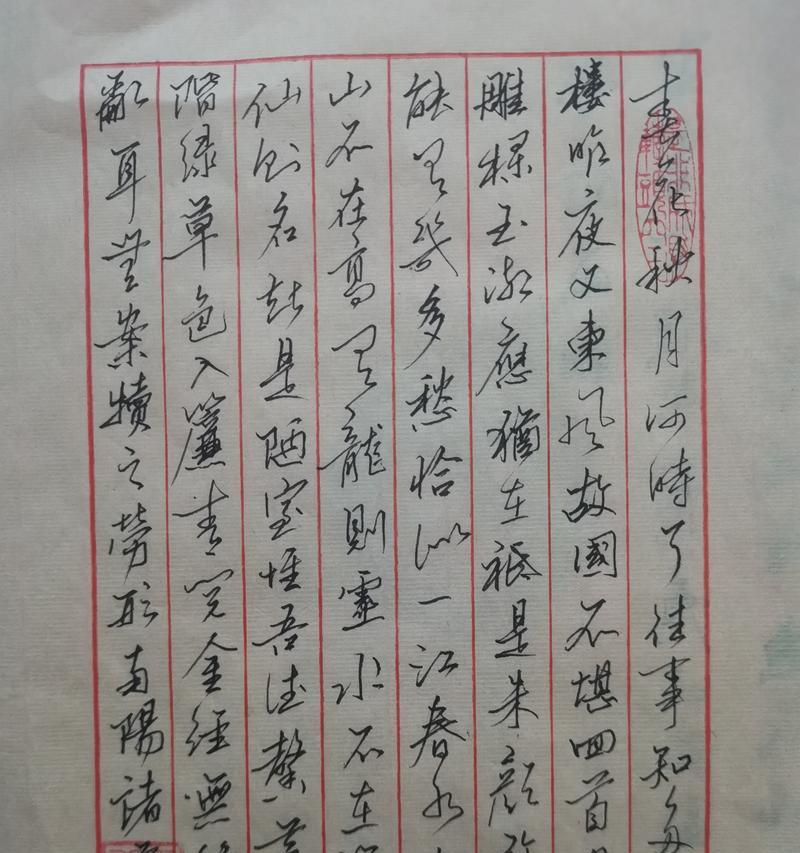 春花秋月何時了往事知多
樓昨夜又東風故國不堪回首
雕欄玉砌應猶在祗是朱顏改
能有幾多愁恰似一江春水
山不在高有龍則靈水不在深
仙則名斯是陋室惟吾德馨苔
階綠草色入簾青閱金經無絲
亂耳無案牘之勞形南陽諸